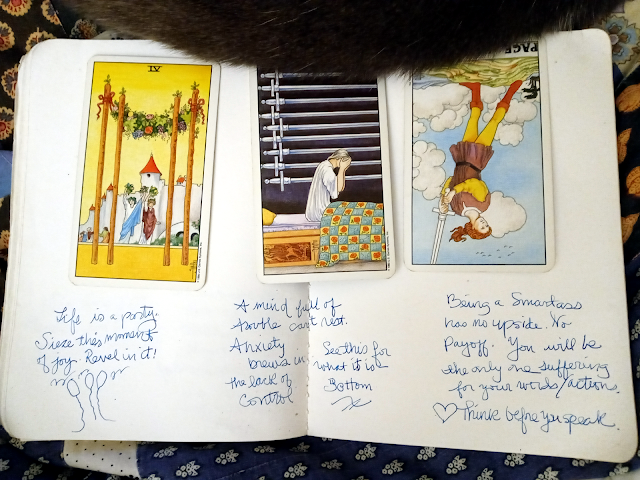 IV
PAGE
Life is a party.
Sieze this moment
of joy. Revel in it!
A mind full of
can't rest.
Anxiety
brews in
the lack of
Control
See this for
what it is
Bottom
Being a Smartass
has no upside. No
Payoff. You will be
the only one suffering
for your words/actions.
Think before you speak.